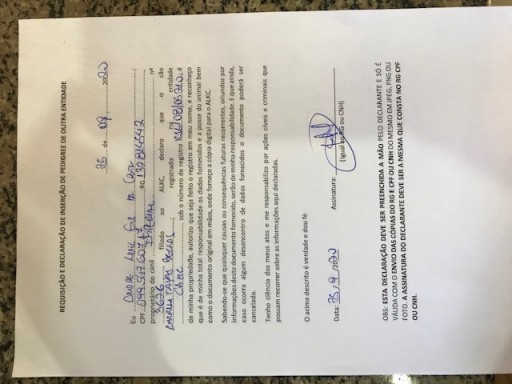 REQUISIÇÃO E DECLARAÇÃO DE INSERÇÃO DE PEDIGREE DE OUTRA ENTIDADE
26 de 09 , 2020
Eu
CPF RG
proprietário do canil nº
3626 filiado ao ALKC, declara que o cão
registrado na entidade
CBKC sob o número de registro é
de minha propriedade, autorizo que seja feito o registro em meu nome, e reconheço
que é de minha total responsabilidade os dados fornecidos e a posse do animal bem
como o documento original em mãos, onde forneço a cópia digital para o ALKC.
Sabendo-se que quaisquer causas ou consequências futuras recorrentes, oriundas por
informações deste documento fornecido, serão de minha responsabilidade. E que ainda,
caso ocorra algum desencontro de dados fornecidos o documento poderá ser
cancelado.
Tenho ciência dos meus atos e me responsabilizo por ações cíveis e criminais que
possam recorrer sobre as informações aqui declaradas.
O acima descrito é verdade e dou fé
Data: 25/9/2020 Assinatura:
(Igual ao RG ou CNH)
OBS: ESTA DECLARAÇÃO DEVE SER PREENCHIDA A MÃO PELO DECLARANTE E SÓ É
VÁLIDA COM O ENVIO DAS CÓPIAS DO RG E CPF OU CNH DO MESMO EM JPEG, PNG OU
FOTO. A ASSINATURA DO DECLARANTE DEVE SER A MESMA QUE CONSTA NO RG CPF
OU CNH.